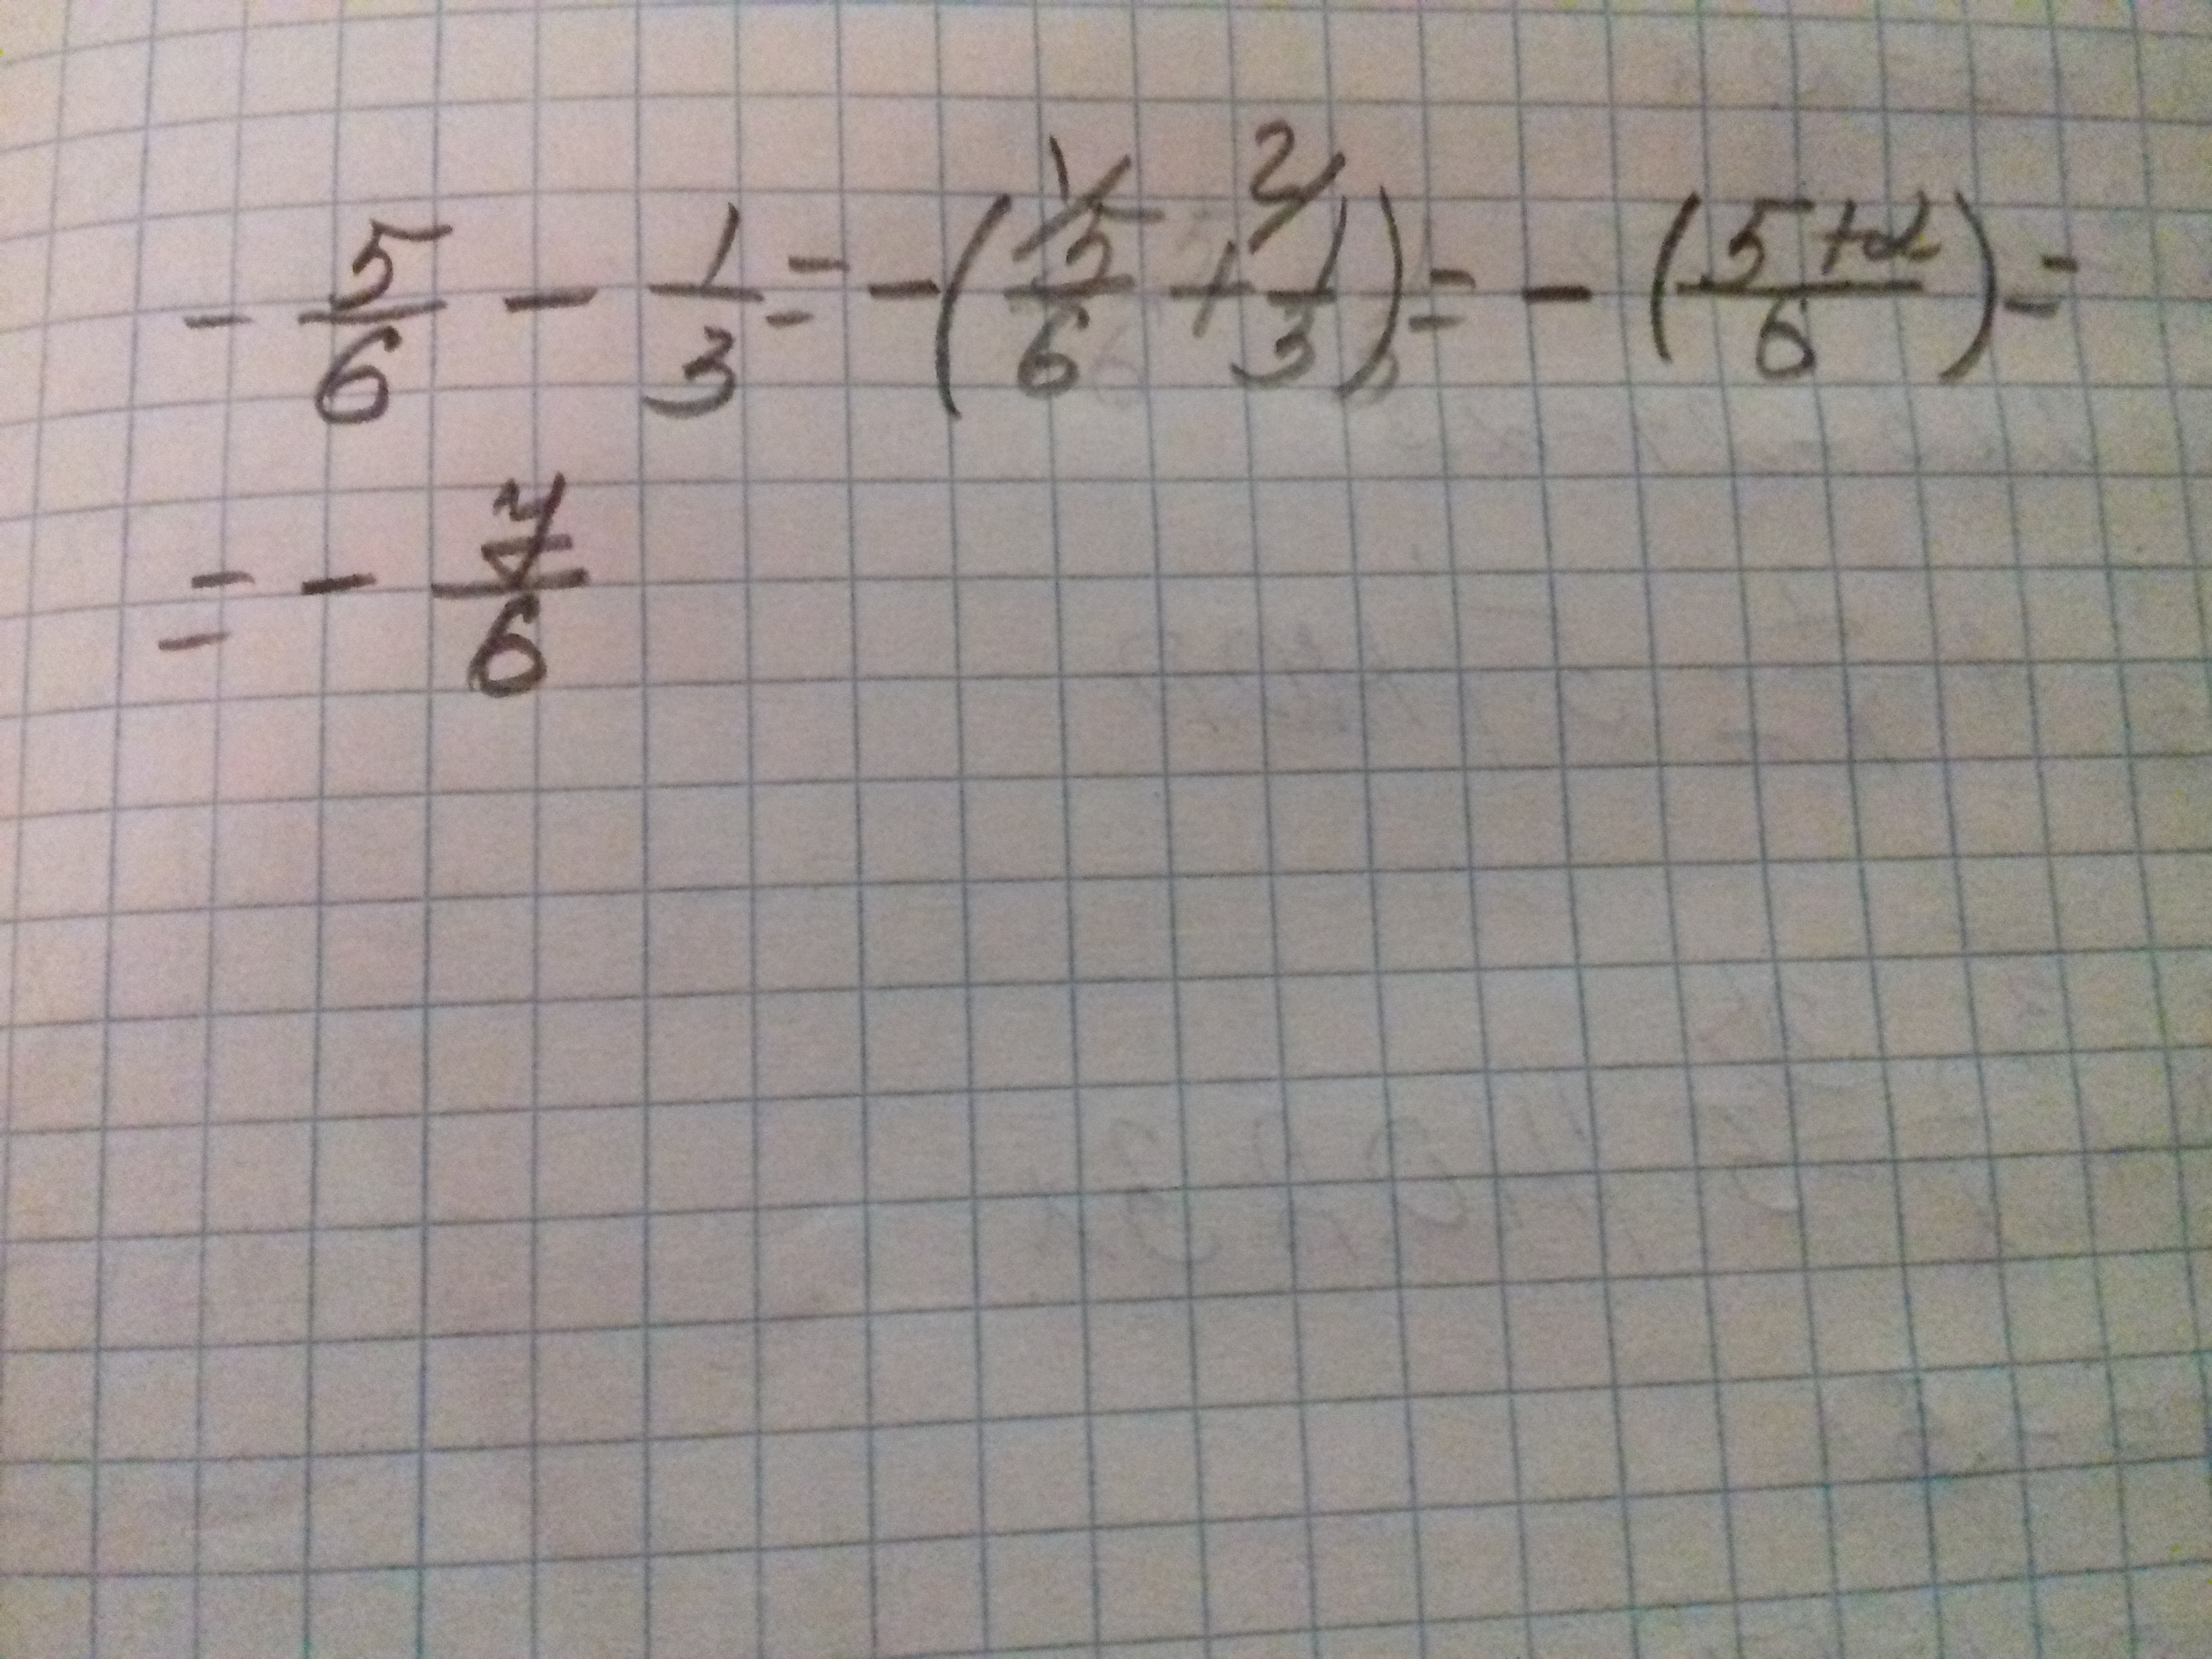 - 5/6 - 1/3 = - (1/ 5/6 + 2/ 1/3) = - (5+2/6) =
= - 7/6